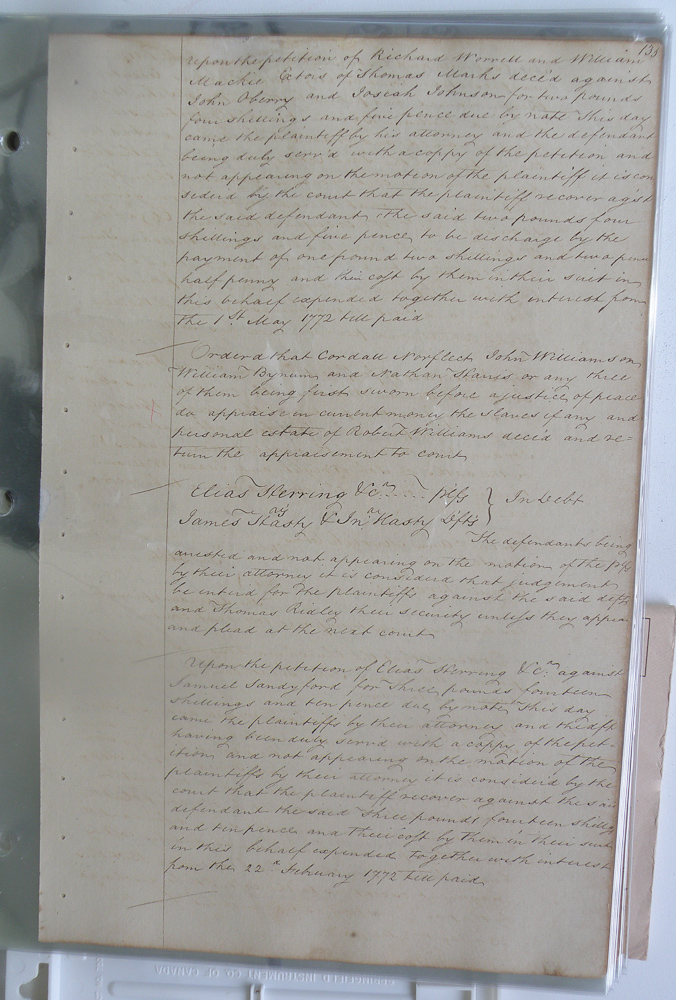 135
Upon the petition of Richard Worrell and William
Mackie Ectors of Thomas Marks decd against
John Oberry and Josiah Johnson for two pounds
four shillings and five pence due by note This day
came the plaintiff by his attorney and the defendant
being duly serv'd with a coppy of the petition and
not appearing on the motion of the plaintiff it is con
siderd by the court that the plaintiff recover agst
the said defendant the said two pounds four
shillings and five pence to be discharge by the
payment of one pound two shillings and two pence
half penny and their cost by them in their suit in
this behalf expended together with interest from
the 1st May 1772 till paid
Orderd that Cordall Norflect John Williamson
William Bynum and Nathan or any three
of them being first sworn before a justice of peace
do appraise in current money the slaves if any and
personal estate of Robert Williams decd and re=
turn the appraisement to court
Elias Herring &ca plfs } In Debt
James Hasty & Jno Hasty Defts
The defendants being
arrested and not appearing on the motion of the plfs
by their attorney it is considerd that judgement
be enterd for the plaintiffs against the said defts
and Thomas Ridley their security unless they appear
and plead at the next court
Upon the petition of Elias Herring &ca against
Samuel Sandyford for three pounds fourteen
shillings and ten pence due by note This day
came the plaintiffs by their attorney and the deft
having been duly serv'd with a coppy of the pet-
ition and not appearing on the motion of the
plaintiffs by their attorney it is considerd by the
court that the plaintiff recover against the said
defendant the said three pounds fourteen shillgs
and ten pence and their cost by them in their suit
in this behalf expended together with interest
from the 22d February 1772 till paid
SPRINGFIELD INSTRUMENT CO. OF CANADA